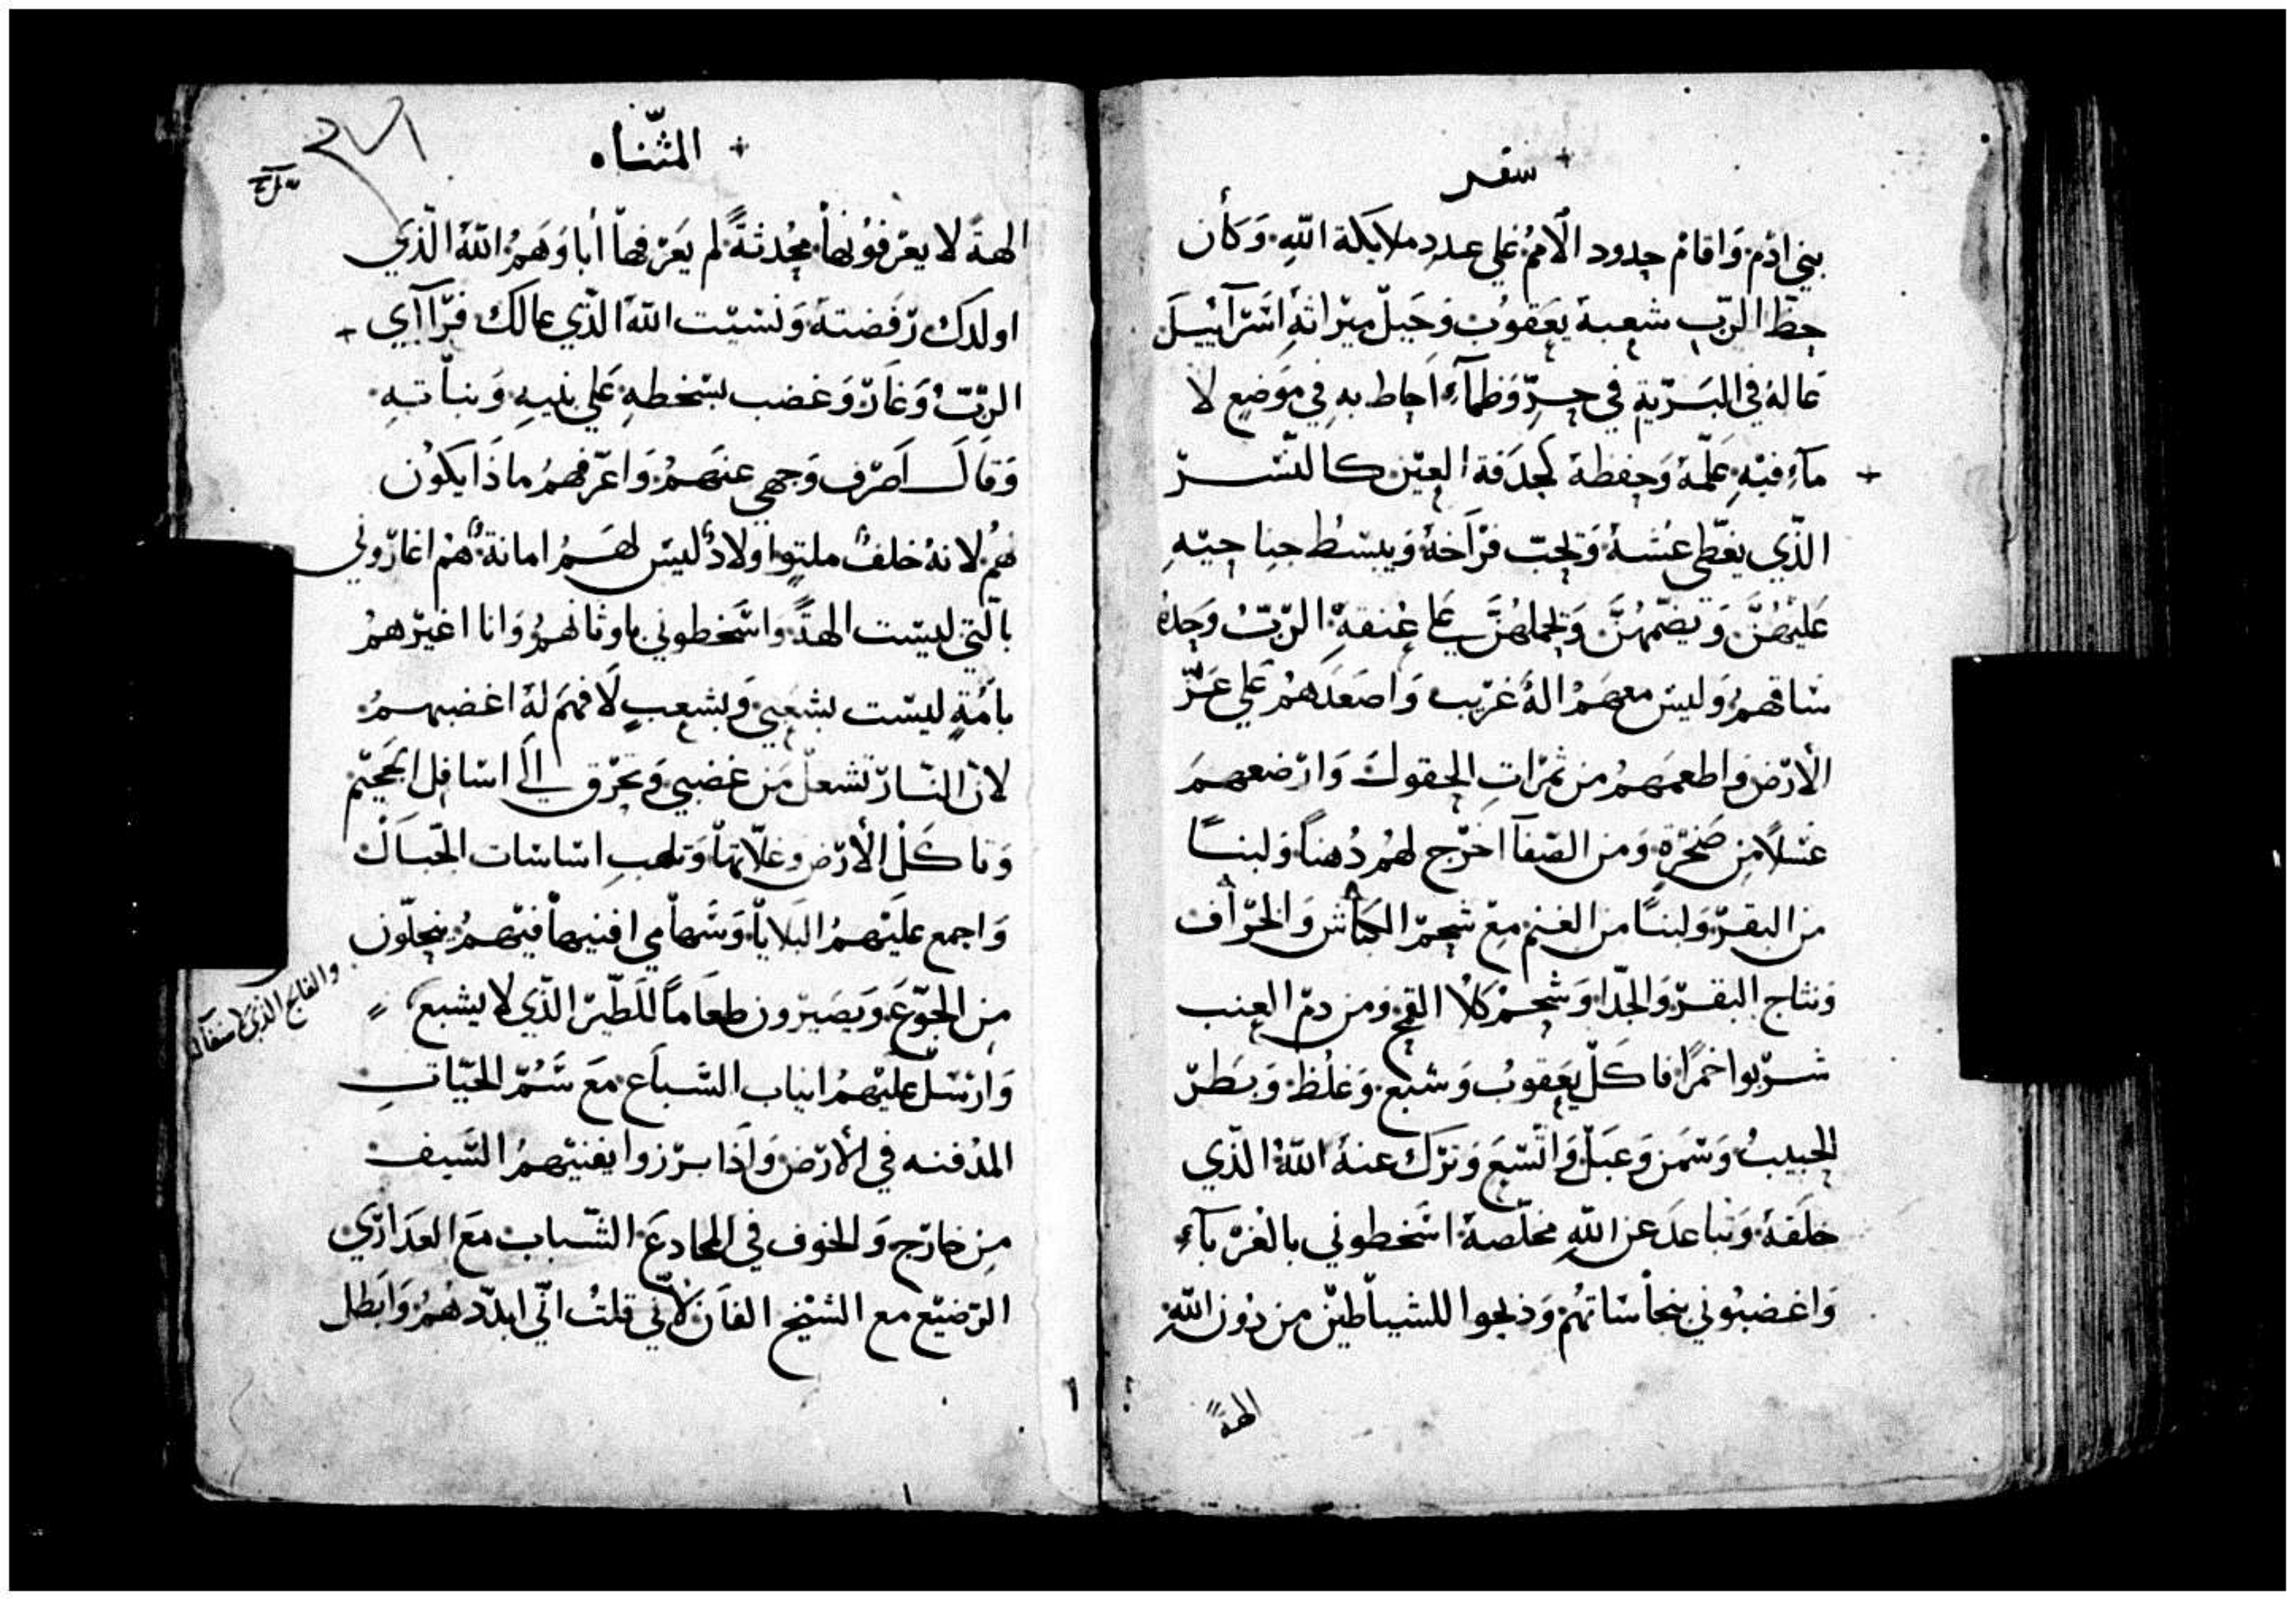 سفر
بني ادم وَاقامَ حدود الاممُ علي عددِ ملايكة اللهِ وَكأن
حظ الربِ شعبهُ يعَقوبْ وَحَبلْ ميرَاثهِ اسَرآييلَ
عَالهُ في البَرّيةِ في حرٍّ وَظمآءٍ احاط بهِ في موَضعٍ لا
مآءٍ فيهِ علّمهُ وَحفظهُ كحدَقة العيْن كالنّسر
الذّي يغَطّي عُشهُ وَيحبّ فرَاخهُ وَيبسُط جناحيْهِ
عَليهُنَّ وَيضمّهُنَّ وَيحملهُنَّ علي عُنقهِ الرّبُّ وَحدهُ
سَاقهمُ وَليسَ معهَمُ الهُ غرَيب وَاصَعدَهمُ علي عزّ
الأرضِ وَاطعمَهمُ من ثمرَاتِ الحقول وَارضعهمَ
عسَلاً مِن صَخرَةٍ وَمن الصّفآ اخرَج لهُم دُهناً وَلبناً
من البقر وَلبناً من الغنم معَ شحم الكبَاش وَالخرَاف
وَنتاج البقرّ وَالجدَا وَشحم كلا القمح وَمن دم العِنب
شربوا خمراً فاكلَ يعَقوبُ وَشبع وَغلُظ وَبطرَ
الحبيبُ وَسَمن وَعَبلْ وَاتّسَعَ وَترَك عنهُ اللهُ الذّي
خلَقهُ وَتباعدَ عن اللهِ مخلّصهُ اسَخطوني بالغُربآءِ
وَاغضبوني بنجاسَاتهُم وَذبحوا للشياطيْن من دُون اللهِ
الهةً
المثناه
الهةً لا يعرفوُنها مُحدثةً لم يعَرفها أباوَهمُ اللهُ الذّي
اولدكَ رَفضتهُ وَنسَيْت اللهَ الذّي عالكَ فرَآاي
الرّبّ وَغارَ وَغضب بسَخطهِ علي بنيهِ وَبناتهِ
وَقالَ اصَرف وَجهي عنهَمُ وَاعرّفهمُ ماذَا يكوُن
لهُم لانهُ خلفٌ ملتوٍ اولادٌ ليسَ لهَمُ امانةٌ هُم اغاروني
بالّتي ليسَت الهةً وَاسَخطوني باوثانهُم وَانا اغيّرهمُ
بأمّةٍ ليسَت بشعبي وَبشعبٍ لَا فهمَ لهُ اغضبهمُ
لانّ النّار تشعلْ من غضبي وَتحرَق الَي اسَافل الجحيم
وَتاكلْ الأرضَ وغلّاتها وَتلهبِ اسَاسَات الجبَال
وَاجمع عليَهمُ البَلايا وَسَهامي افنيها فيهمُ ينحلّون
مِن الجوَعِ وَيصَيرون طعَاماً للَطّير الذّي لا يشبع
وَارسَل عليهمُ انياب السّباعَ معَ سَمُّ الحيّاتِ
المدْفنه في الأرضِ وَاذَا برَزوا يفنيَهمُ السّيف
مِن خارَج وَالخوف في المخادعَ الشّباب معَ العذارَي
الرّضيع مع الشّيخ الفانْ لأني قلتُ انّي ابدّدهمُ وَابَطل